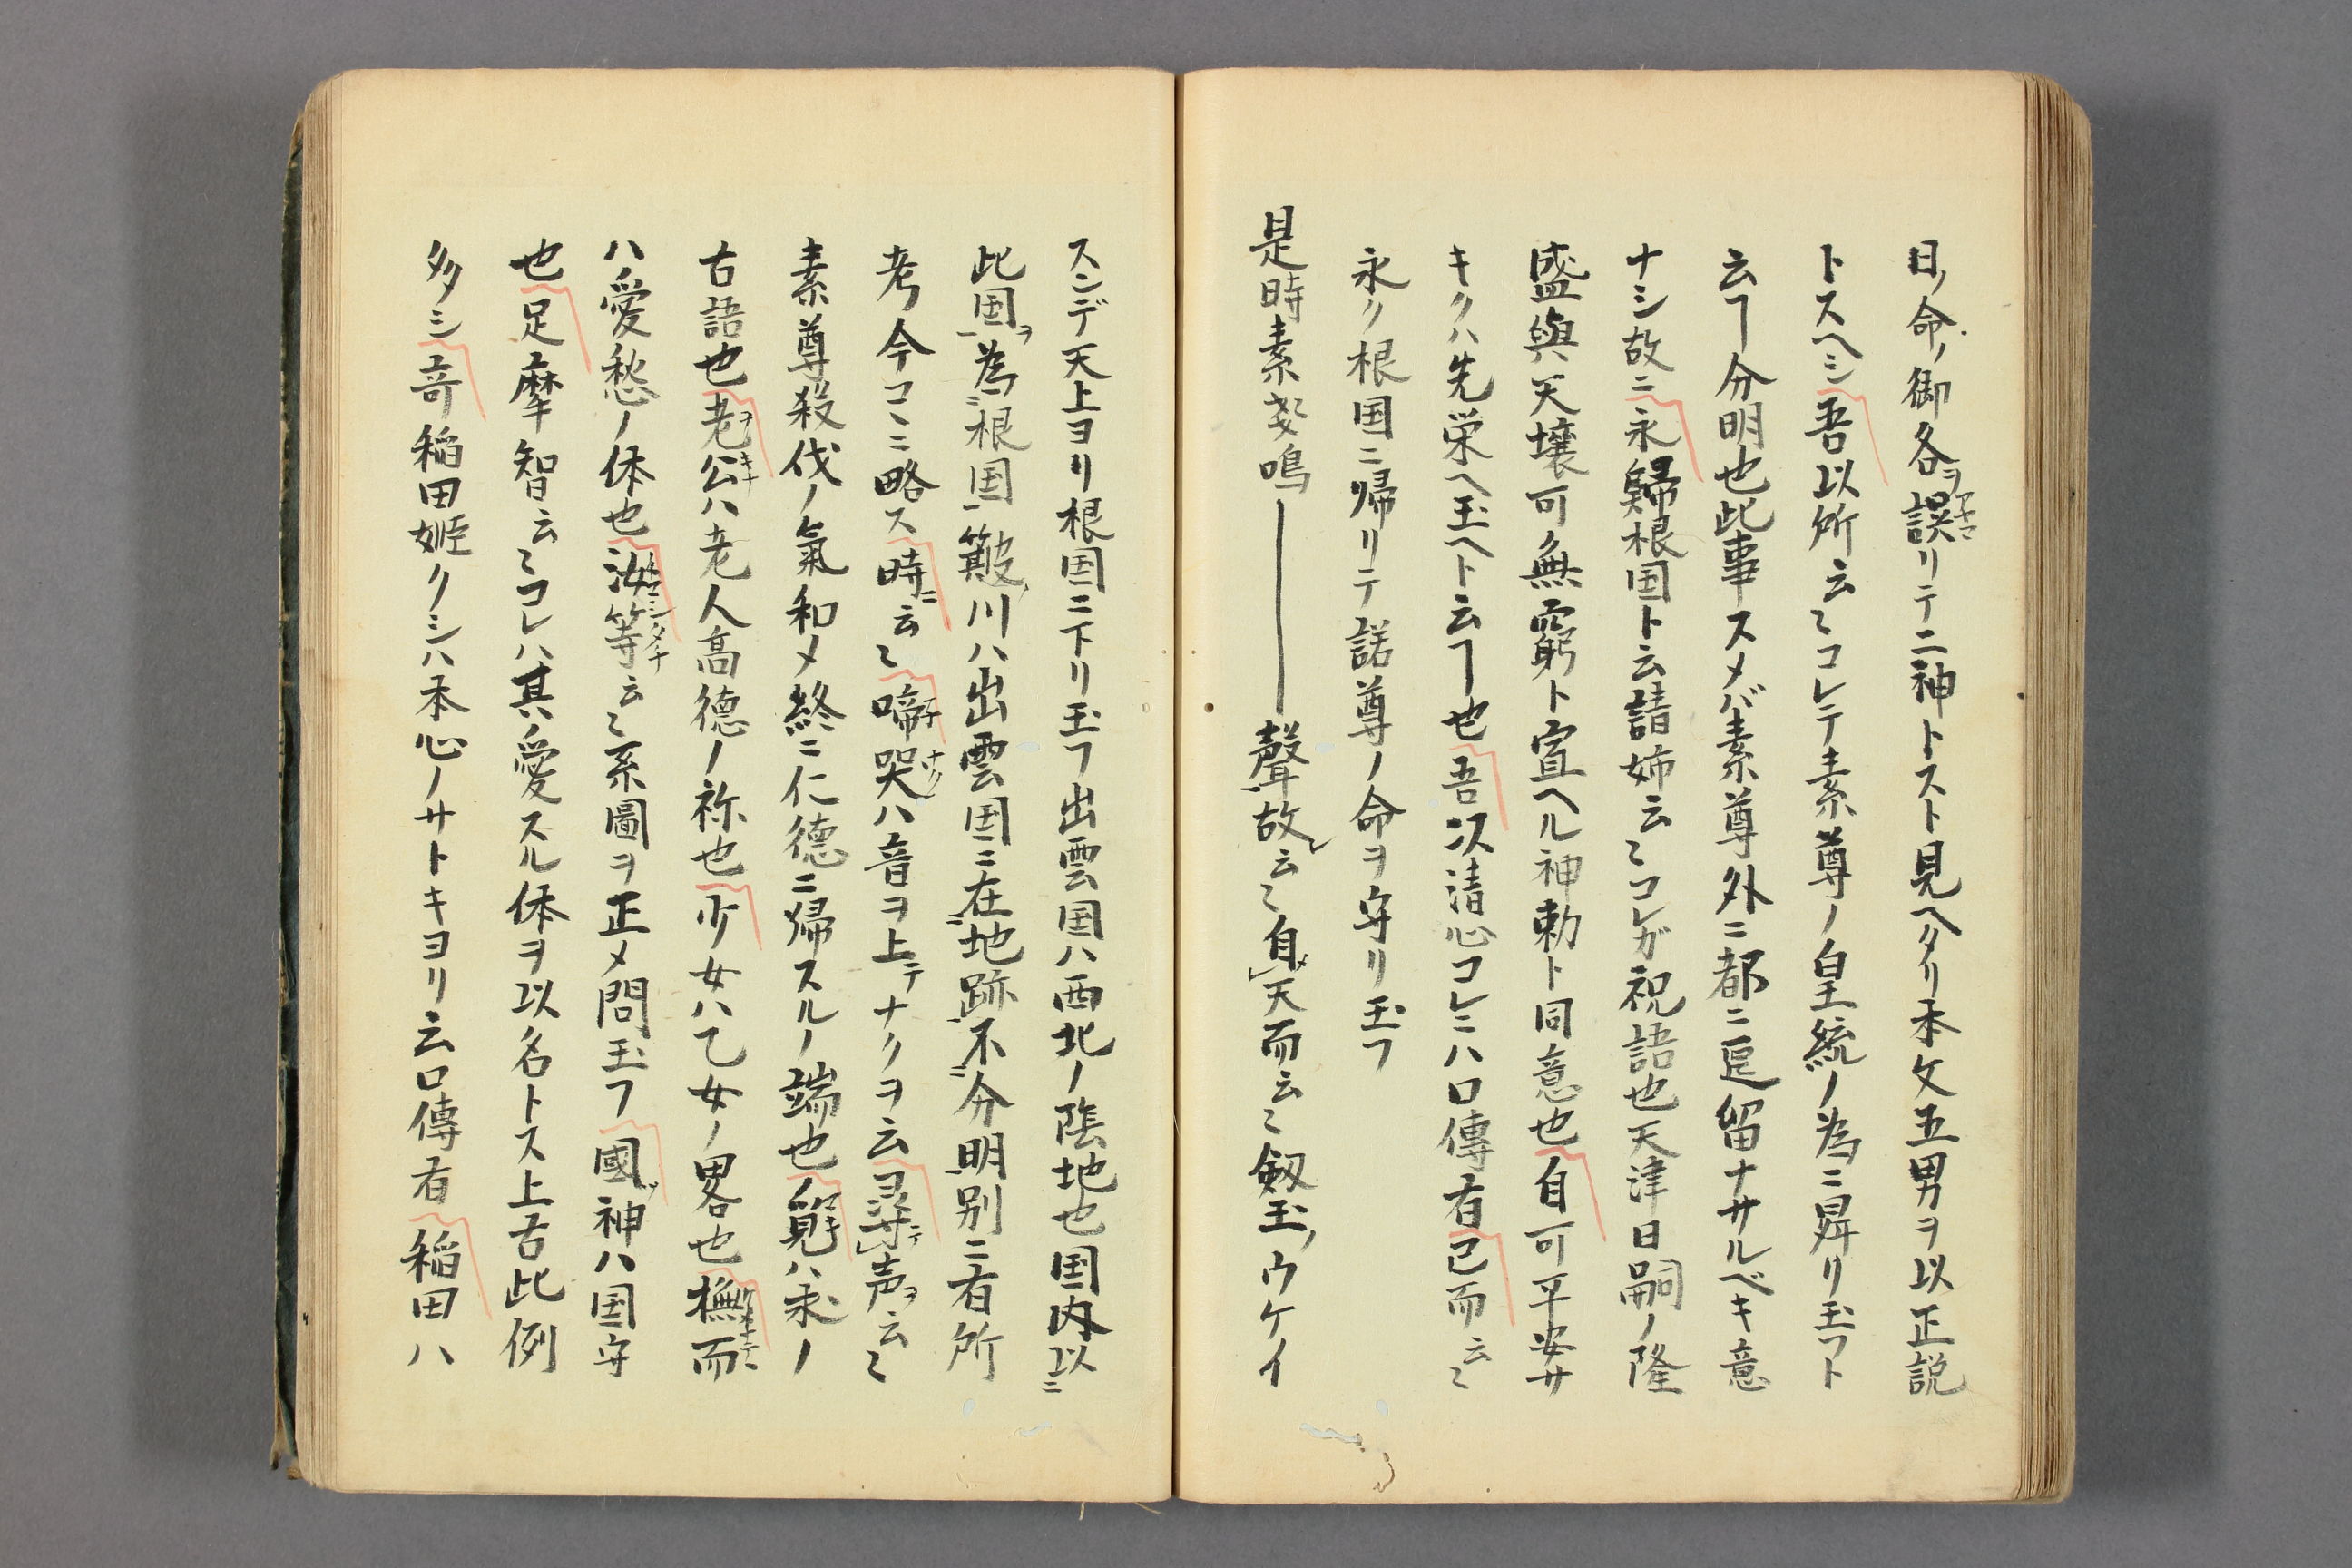 日ノ命ノ御名ヲ誤リテ二神トスト見ヘタリ本文五男ヲ以正説
トスヘシ吾以所云〻コレテ素尊ノ皇統ノ為ニ昇リ玉フト
云ヿ分明也此事スメバ素尊外ニ都ニ逗留ナサルベキ意
ナシ故ニ永歸根国ト云請姉云〻コレガ祝語也天津日嗣ノ隆
盛與天壤可無窮ト宣ヘル神勅ト同意也自可平安サ
キクハ先栄ヘ玉ヘト云ヿ也吾以清心コレニハ口傳有已而云〻
永ク根国ニ帰リテ諾尊ノ命ヲ守リ玉フ
是時素戔嗚―聲故云〻自天而云〻劔玉ノウケイ
スンデ天上ヨリ根国ニ下リ玉フ出雲国ハ西北ノ陰地也国内以
此国ヲ為根国簸川ハ出雲国ニ在地跡不分明別ニ有所
考今コヽニ略ス時ニ云〻啼哭ハ音ヲ上テナクヲ云尋声ヲ云〻
素尊殺伐ノ氣和メ終ニ仁德ニ帰スルノ端也覓ハ求ノ
古語也老公ハ老人高德ノ称也少女ハ乙女ノ畧也撫而
ハ愛愁ノ体也汝等云〻系圖ヲ正メ問玉フ國神ハ国守
也足摩智云〻コレハ其ノ愛スル体ヲ以名トス上古此例
多シ竒稲田姫クシハ本心ノサトキヨリ云口傳有稲田ハ